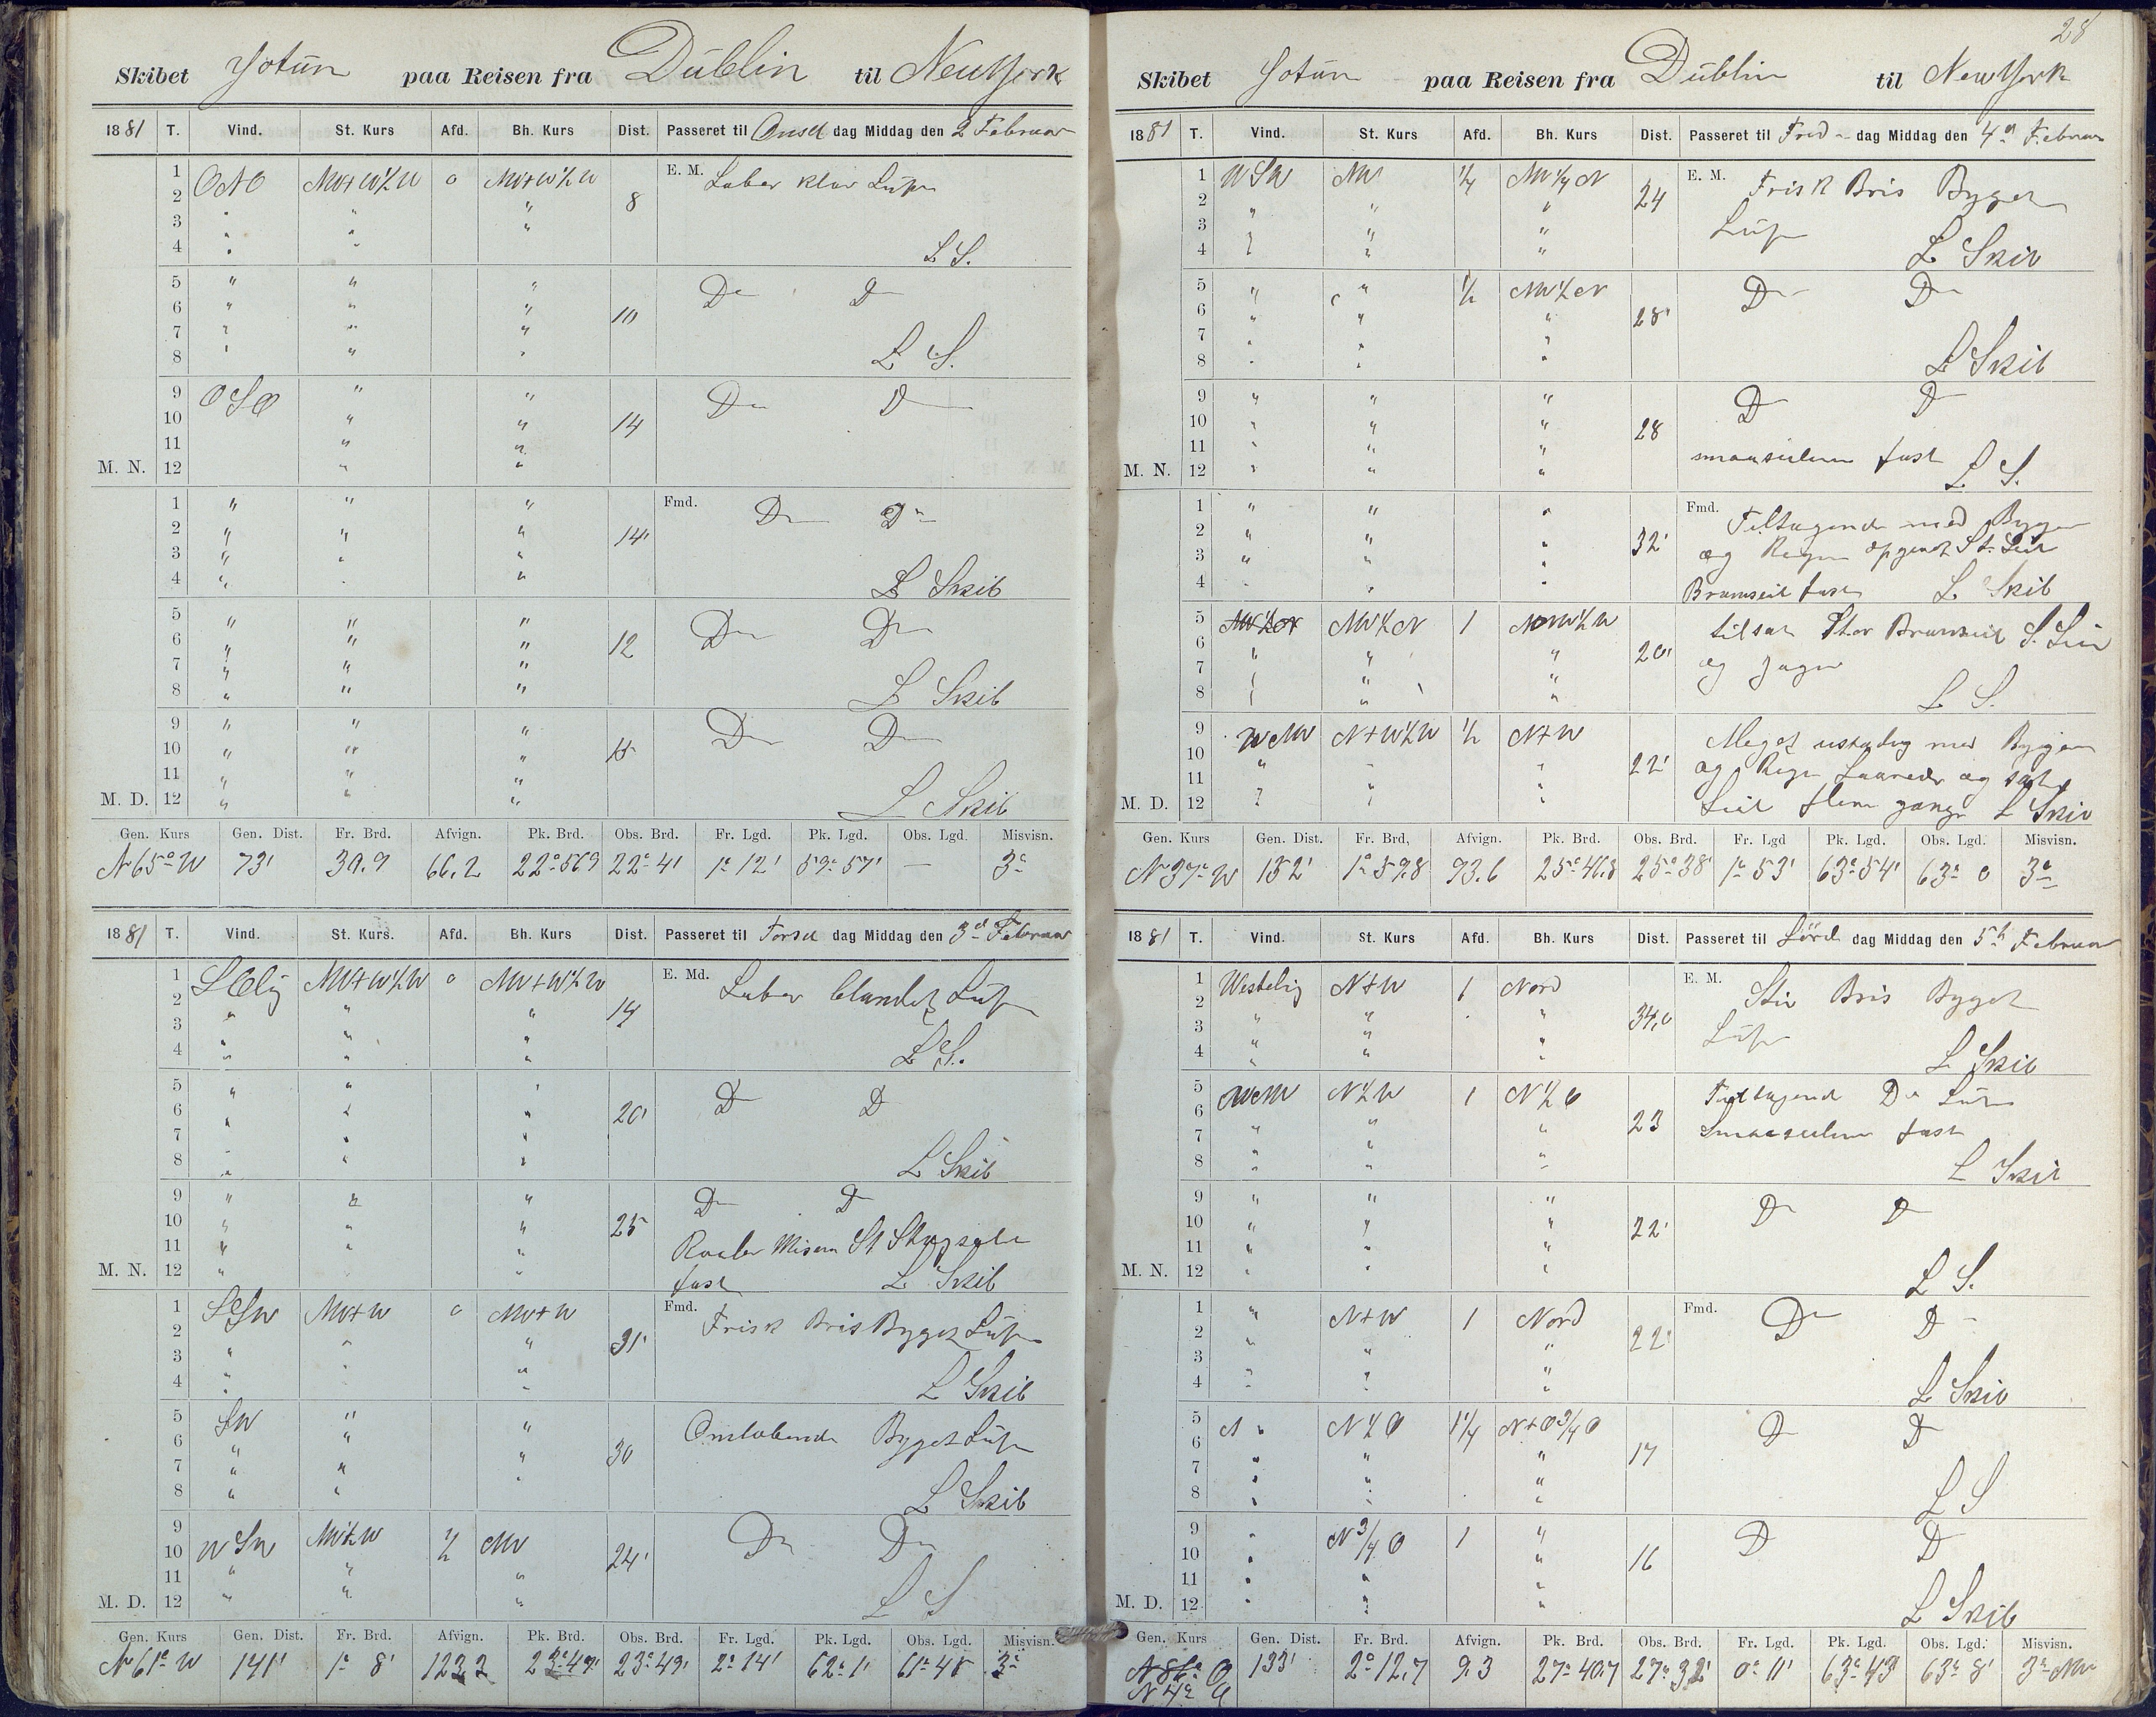 Skibet Jotun paa Reisen fra Dublin til New York
1881 T. Vind. St. Kurs Afd. Bh. Kurs Dist. Passeret til Onsd dag Middag den 2 Februar
1 ONO NW+W½W 0 NW+W½W E. M. Laber klar Luft
2 " " " 8
3 " " "
4 " " L S.
5 " " " Do Do
6 " " " 10
7 " " "
8 " " " L S.
9 OSO " " Do D
10 " " 14
11 " "
M. N. 12 " "
1 " " " Fmd. Do Do
2 " " " 14'
3 " " "
4 " " " L Skib
5 " " " Do Do
6 " " " 12
7 " " "
8 " " " L Skib
9 " " " Do Do
10 " " " 15
11 " " "
M. D. 12 " " " L Skib
Gen. Kurs Gen. Dist. Fr. Brd. Afvign. Pk. Brd. Obs. Brd. Fr. Lgd. Pk. Lgd. Obs. Lgd. Misvisn.
N 65° W 73' 30.9 66.2 22° 56.9 22° 41 1° 12' 59° 57' — 3°
1881 T. Vind. St. Kurs. Afd. Bh. Kurs Dist. Passeret til Torsd dag Middag den 3d Februar
1 SOlig NW+W½W 0 NW+W½W E. Md. Laber blandet Luft
2 " " " 14
3 " " "
4 " " " L S.
5 " " " D D
6 " " " 20'
7 " " "
8 " " " L Skib
9 " " " Do D
10 " " " 25 Røiler Misan St Stagseile
11 " " "
M. N. 12 " " " fast L Skib
1 SSW NW+W 0 NW+W Fmd. Frisk Bris Byget Luft
2 " " " 31'
3 " " "
4 " " " L Skib
5 SW " " Omløbende Byget Luft
6 " " " 30
7 " " "
8 " " " L Skib
9 WSW NW½W ½ NW Do Do
10 " " " 24'
11 " " "
M. D. 12 " " " L S
Gen. Kurs Gen. Dist. Fr. Brd. Afvign. Pk. Brd. Obs. Brd. Fr. Lgd. Pk. Lgd. Obs. Lgd. Misvisn.
N 61° W 141' 1° 8' 123.2 23° 49' 23° 49' 2° 14' 62° 1' 61° 48 3°
28
Skibet Jotun paa Reisen fra Dublin til New York
1881 T. Vind. St. Kurs Afd. Bh. Kurs Dist. Passeret til Fred dag Middag den 4d Februar
1 WSW NW ¼ NW¼N E. M. Frisk Bris Byget
2 " " " 24
3 " " " Luft
4 " " " L Skib
5 " " ½ NW½N Do Do
6 " " " 28'
7 " " "
8 " " " L Skib
9 " " " D D
10 " " " 28
11 " " " smaaseilene fast
M. N. 12 " " " L S.
1 " " " Fmd. Tiltagende med Byger
2 " " " 32'
3 " " " og Regn St. Seil
4 " " " Bramseil fast L Skib
5 NW½N NW½N 1 NNW½W tilsat Stor Bramseil S. Seil
6 " " " 20'
7 " " " og Jager
8 " " " L S.
9 WNW N+W½W ½ N+W Meget ustadig med Bygen
10 " " " 22' og Regn
11 " " "
M. D. 12 " " " Seil flere gange L Skib
Gen. Kurs Gen. Dist. Fr. Brd, Afvign. Pk. Brd. Obs. Brd. Fr. Lgd Pk. Lgd. Obs. Lgd. Misvisn.
N 37° W 152' 1° 59.8 93.6 25° 46.8 25° 38' 1° 53' 63° 54' 63° 0 3°
1881 T. Vind. St. Kurs Afd. Bh. Kurs Dist. Passeret til Lörd dag Middag den 5h Februar
1 Westelig N+W 1 Nord E. M. Stiv Bris Byget
2 " " " 34,0
3 " " " Luft
4 " " " L Skib
5 WNW N½W 1 N½O Tiltagende Do Luft
6 " " " 23 Smaaseilene fast
7 " " "
8 " " " L Skib
9 " " " Do D
10 " " " 22'
11 " " "
M. N. 12 " " " L S.
1 " N+W 1 Nord Fmd. Do D
2 " " " 22'
3 " " "
4 " " " L Skib
5 N " N½O 1¼ N+O¾O D D
6 " " " 17
7 " " "
8 " " " L S
9 " N¾O 1 " D D
10 " " " 16
11 " " "
M. D. 12 " " " L Skib
Gen. Kurs Gen. Dist. Fr. Brd. Afvign. Pk. Brd. Obs. Brd. Fr. Lgd. Pk. Lgd. Obs. Lgd. Misvisn.
N 86° O 133' 2° 12.7 9.3 27° 40.7 27° 32' 0° 11' 63° 43 63° 8' 3° NW
N 4° O